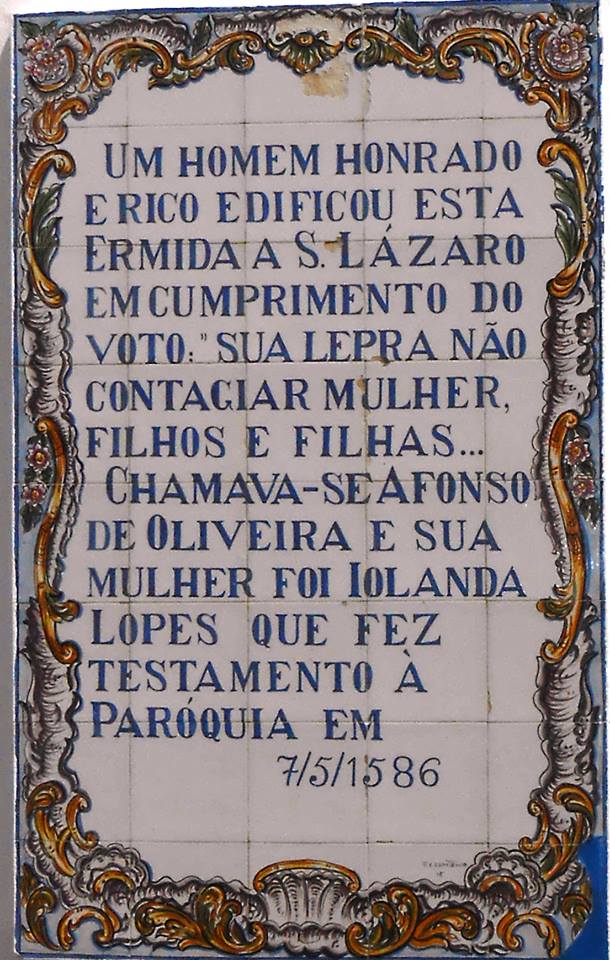 UM HOMEM HONRADO
E RICO EDIFICOU ESTA
ERMIDA A S. LÁZARO
EM CUMPRIMENTO DO
VOTO: "SUA LEPRA NÃO
CONTAGIAR MULHER,
FILHOS E FILHAS...
CHAMAVA-SE AFONSO
DE OLIVEIRA E SUA
MULHER FOI IOLANDA
LOPES QUE FEZ
TESTAMENTO À
PARÓQUIA EM
7/5/1586